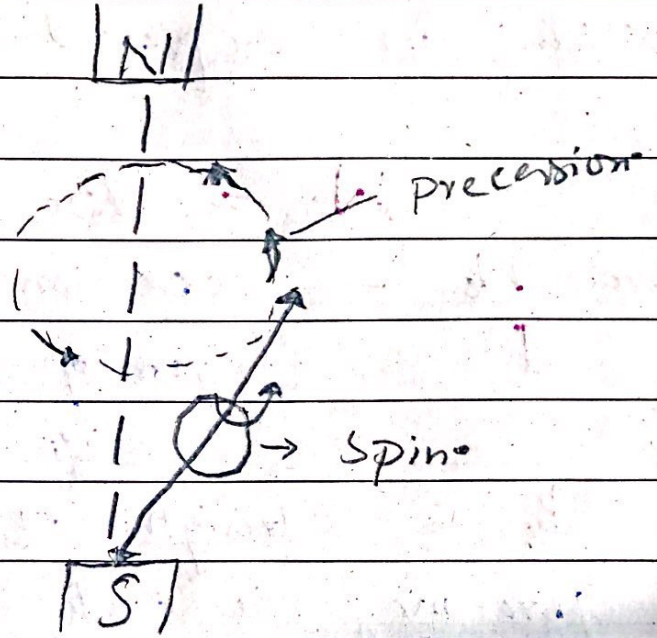 N
precession
Spin
S